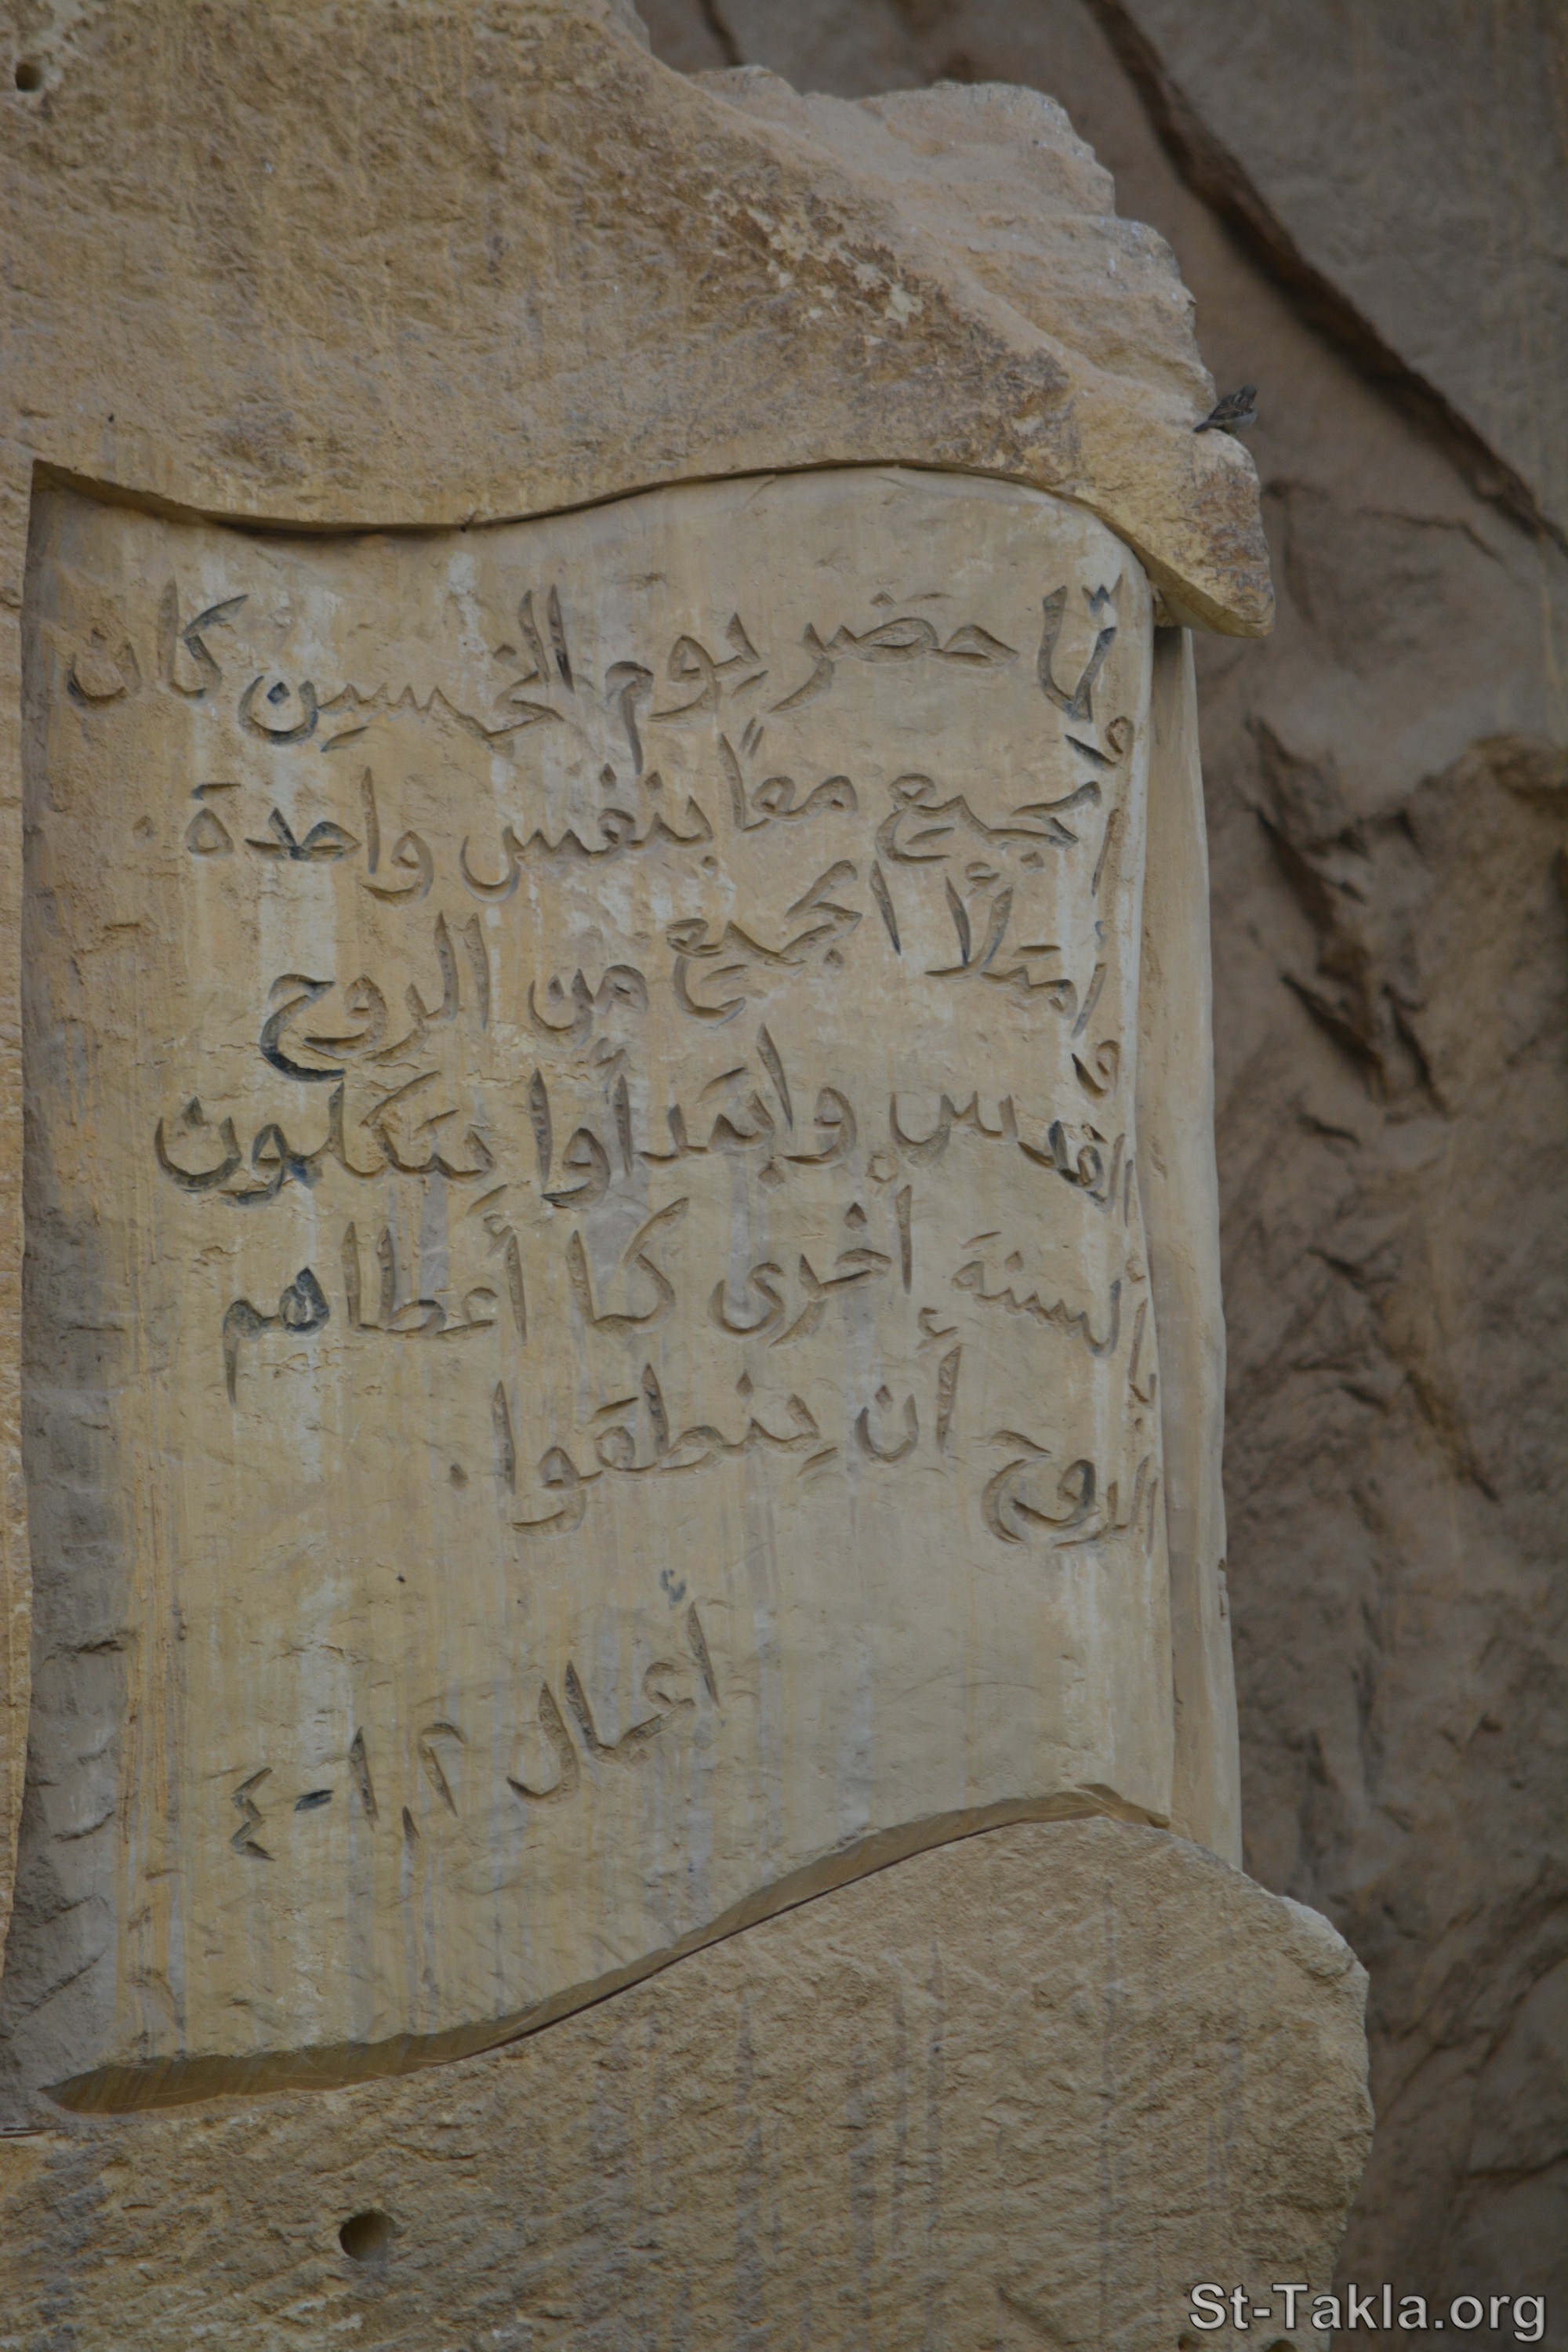 ولمّا حضر يوم الخمسين كان
الجميع معًا بنفس واحدة.
وامتلأ الجميع من الروح
القدس وابتدأوا يتكلمون
بألسنة أخرى كما أعطاهم
الروح أن ينطقوا.
أعمال ٢, ١-٤
St-Takla.org